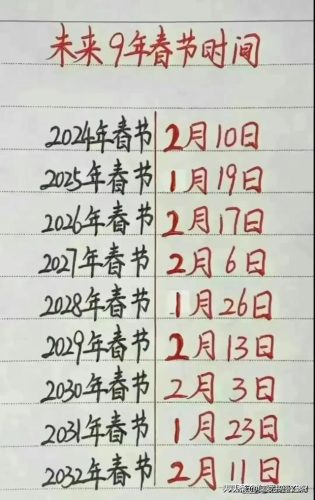 未来9年春节时间
2024年春节 2月10日
2025年春节 1月19日
2026年春节 2月17日
2027年春节 2月6日
2028年春节 1月26日
2029年春节 2月13日
2030年春节 2月3日
2031年春节 1月23日
2032年春节 2月11日